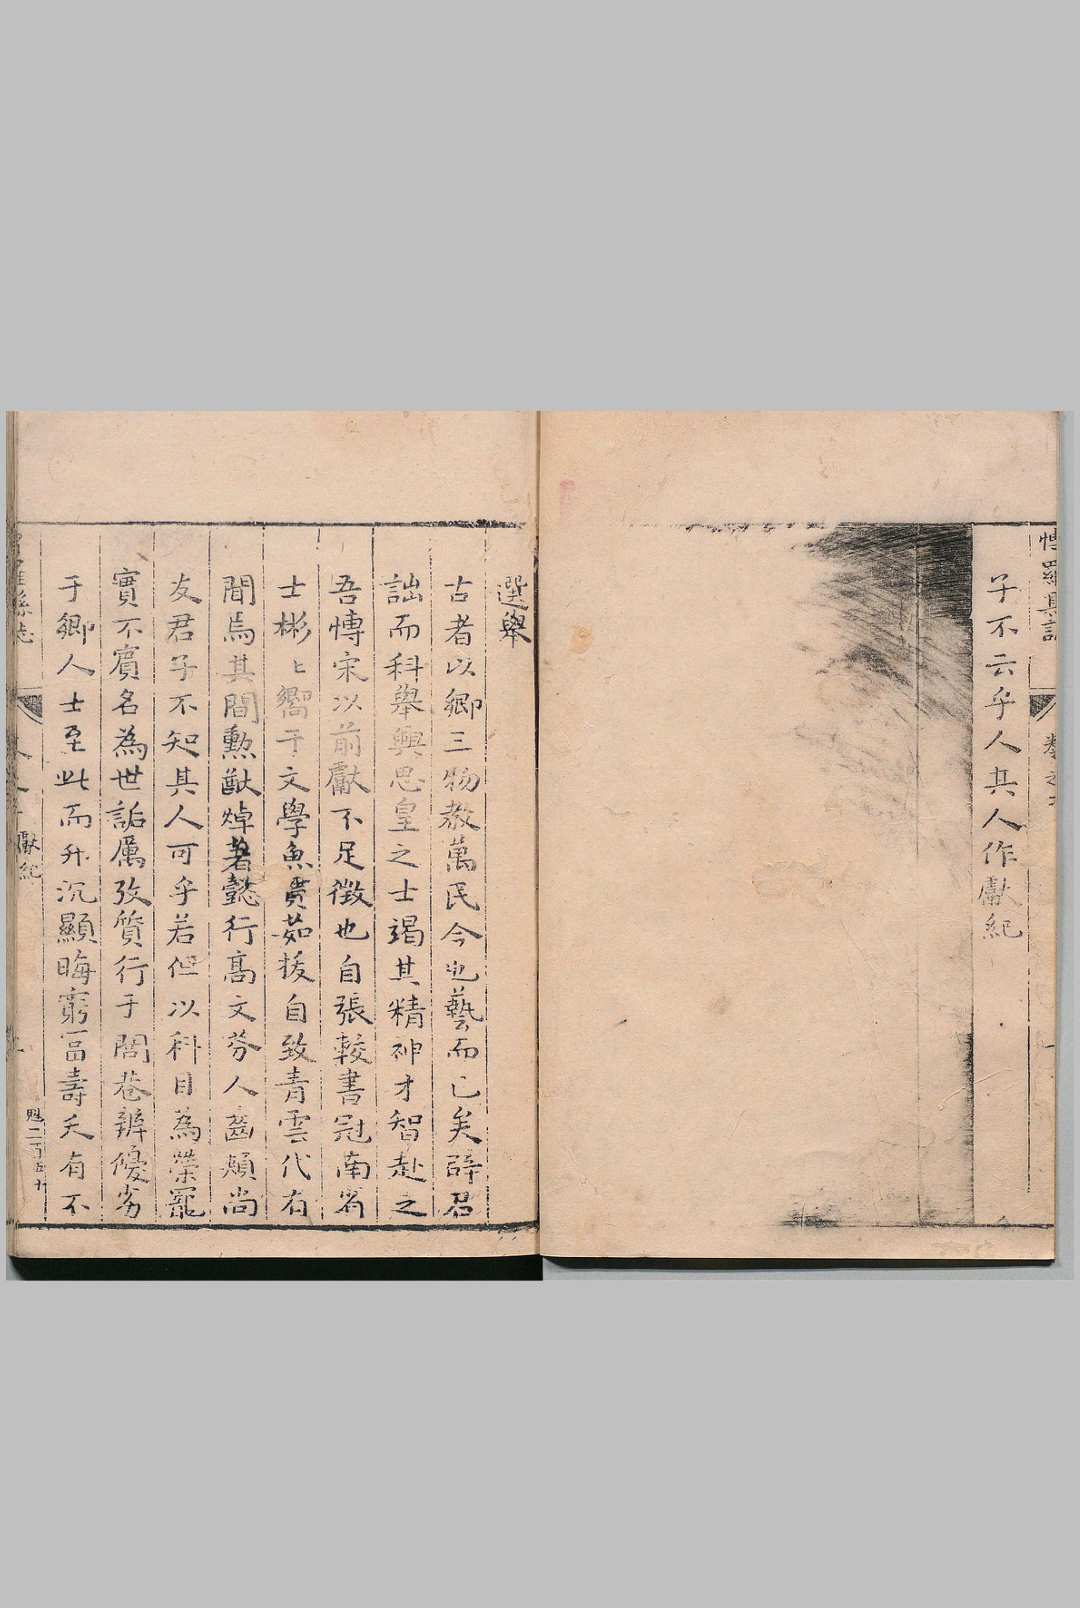 博羅縣誌
卷之六
子不云乎人其人作獻紀
選舉
古者以鄉三物教萬民今也藝而已矣辟召
詘而科舉興思皇之士竭其精神才智赴之
吾博宋以前獻不足徵也自張較書冠南省
士彬〻嚮于文學魚貫茹拔自致青雲代有
聞焉其間勲猷焯著懿行高文芬人齒頰尚
友君子不知其人可乎若但以科目為榮寵
實不賓名為世詬厲攷質行于閭巷辨優劣
于鄉人士至此而升沉顯晦窮富壽夭有不
獻紀
二百五十